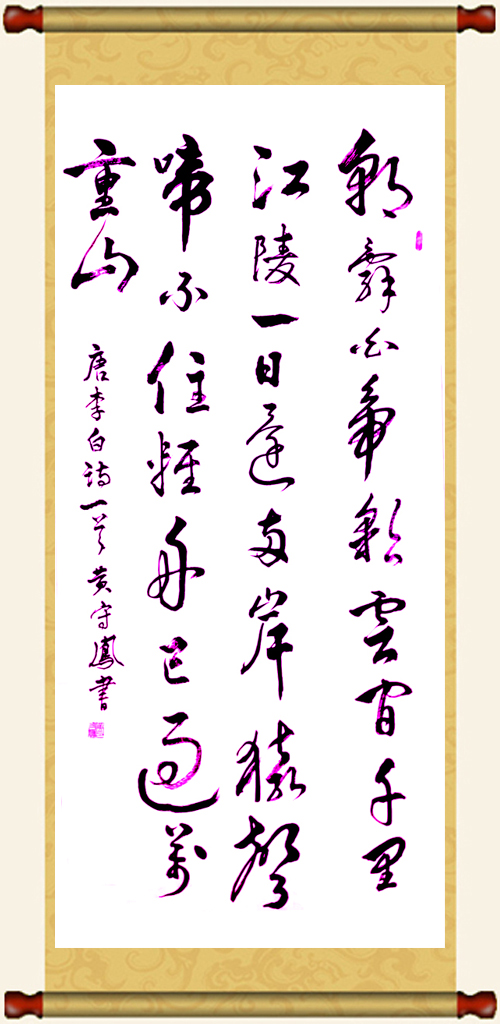 朝辭白帝彩雲間千里
江陵一日還兩岸猿聲
啼不住輕舟已過萬
重山
唐李白詩一首黄守鳳書